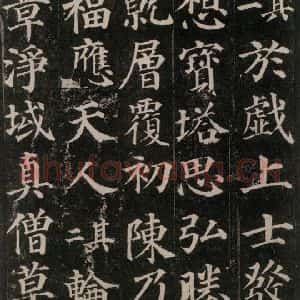 其一於戲上士發
想寶塔思弘勝
就層覆初陳乃
福應天人其二輪
章淨域真僧草
shufawang.cn